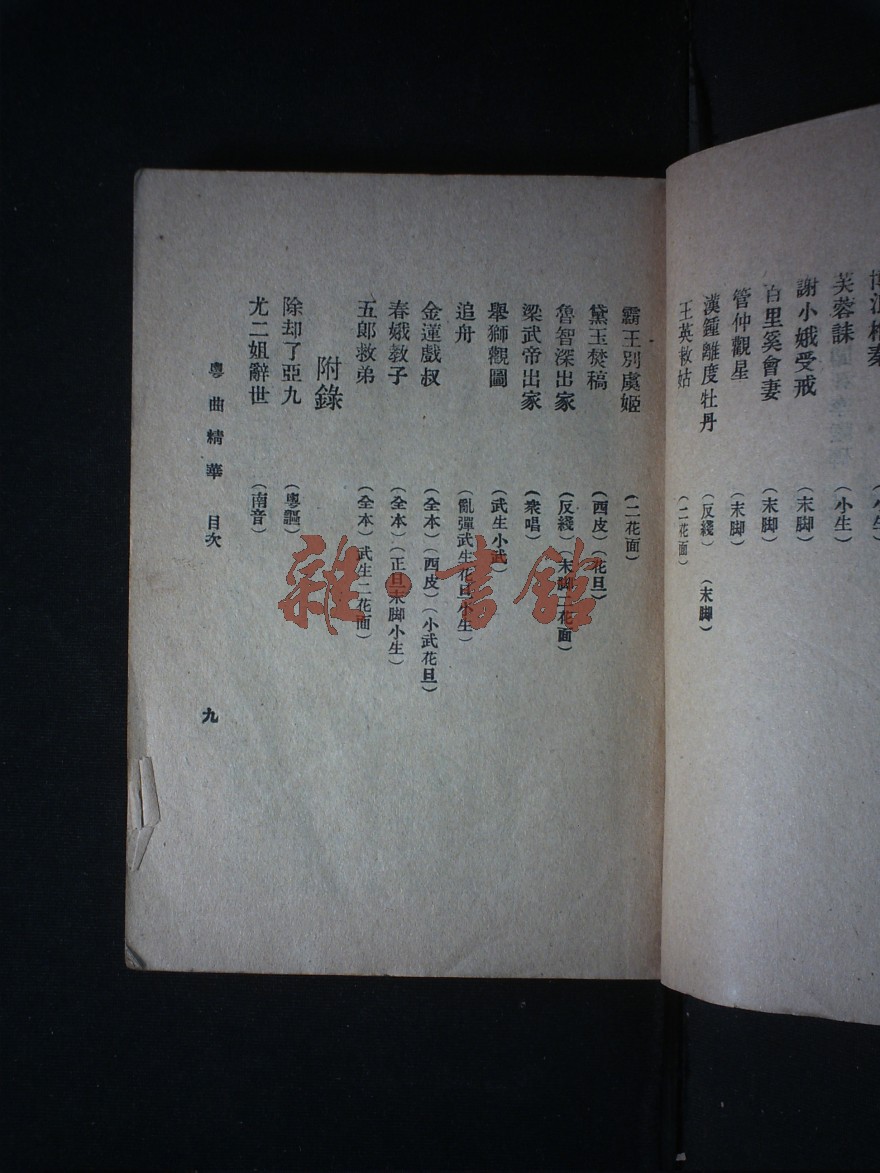 芙蓉誄 （小生）
謝小娥受戒 （末脚）
百里奚會妻 （末脚）
管仲觀星 （末脚）
漢鍾離度牡丹 （反綫）（末脚）
王英救姑 （二花面）
霸王別虞姬 （二花面）
黛玉焚稿 （西皮）（花旦）
魯智深出家 （反綫）（末脚二花面）
梁武帝出家 （衆唱）
舉獅觀圖 （武生小武）
追舟 （亂彈武生花旦小生）
金蓮戲叔 （全本）（西皮）（小武花旦）
春娥教子 （全本）（正旦末脚小生）
五郎救弟 （全本）武生二花面）
附錄
除却了亞九 （粵謳）
尤二姐辭世 （南音）
粵曲精華 目次 九
雜·書館